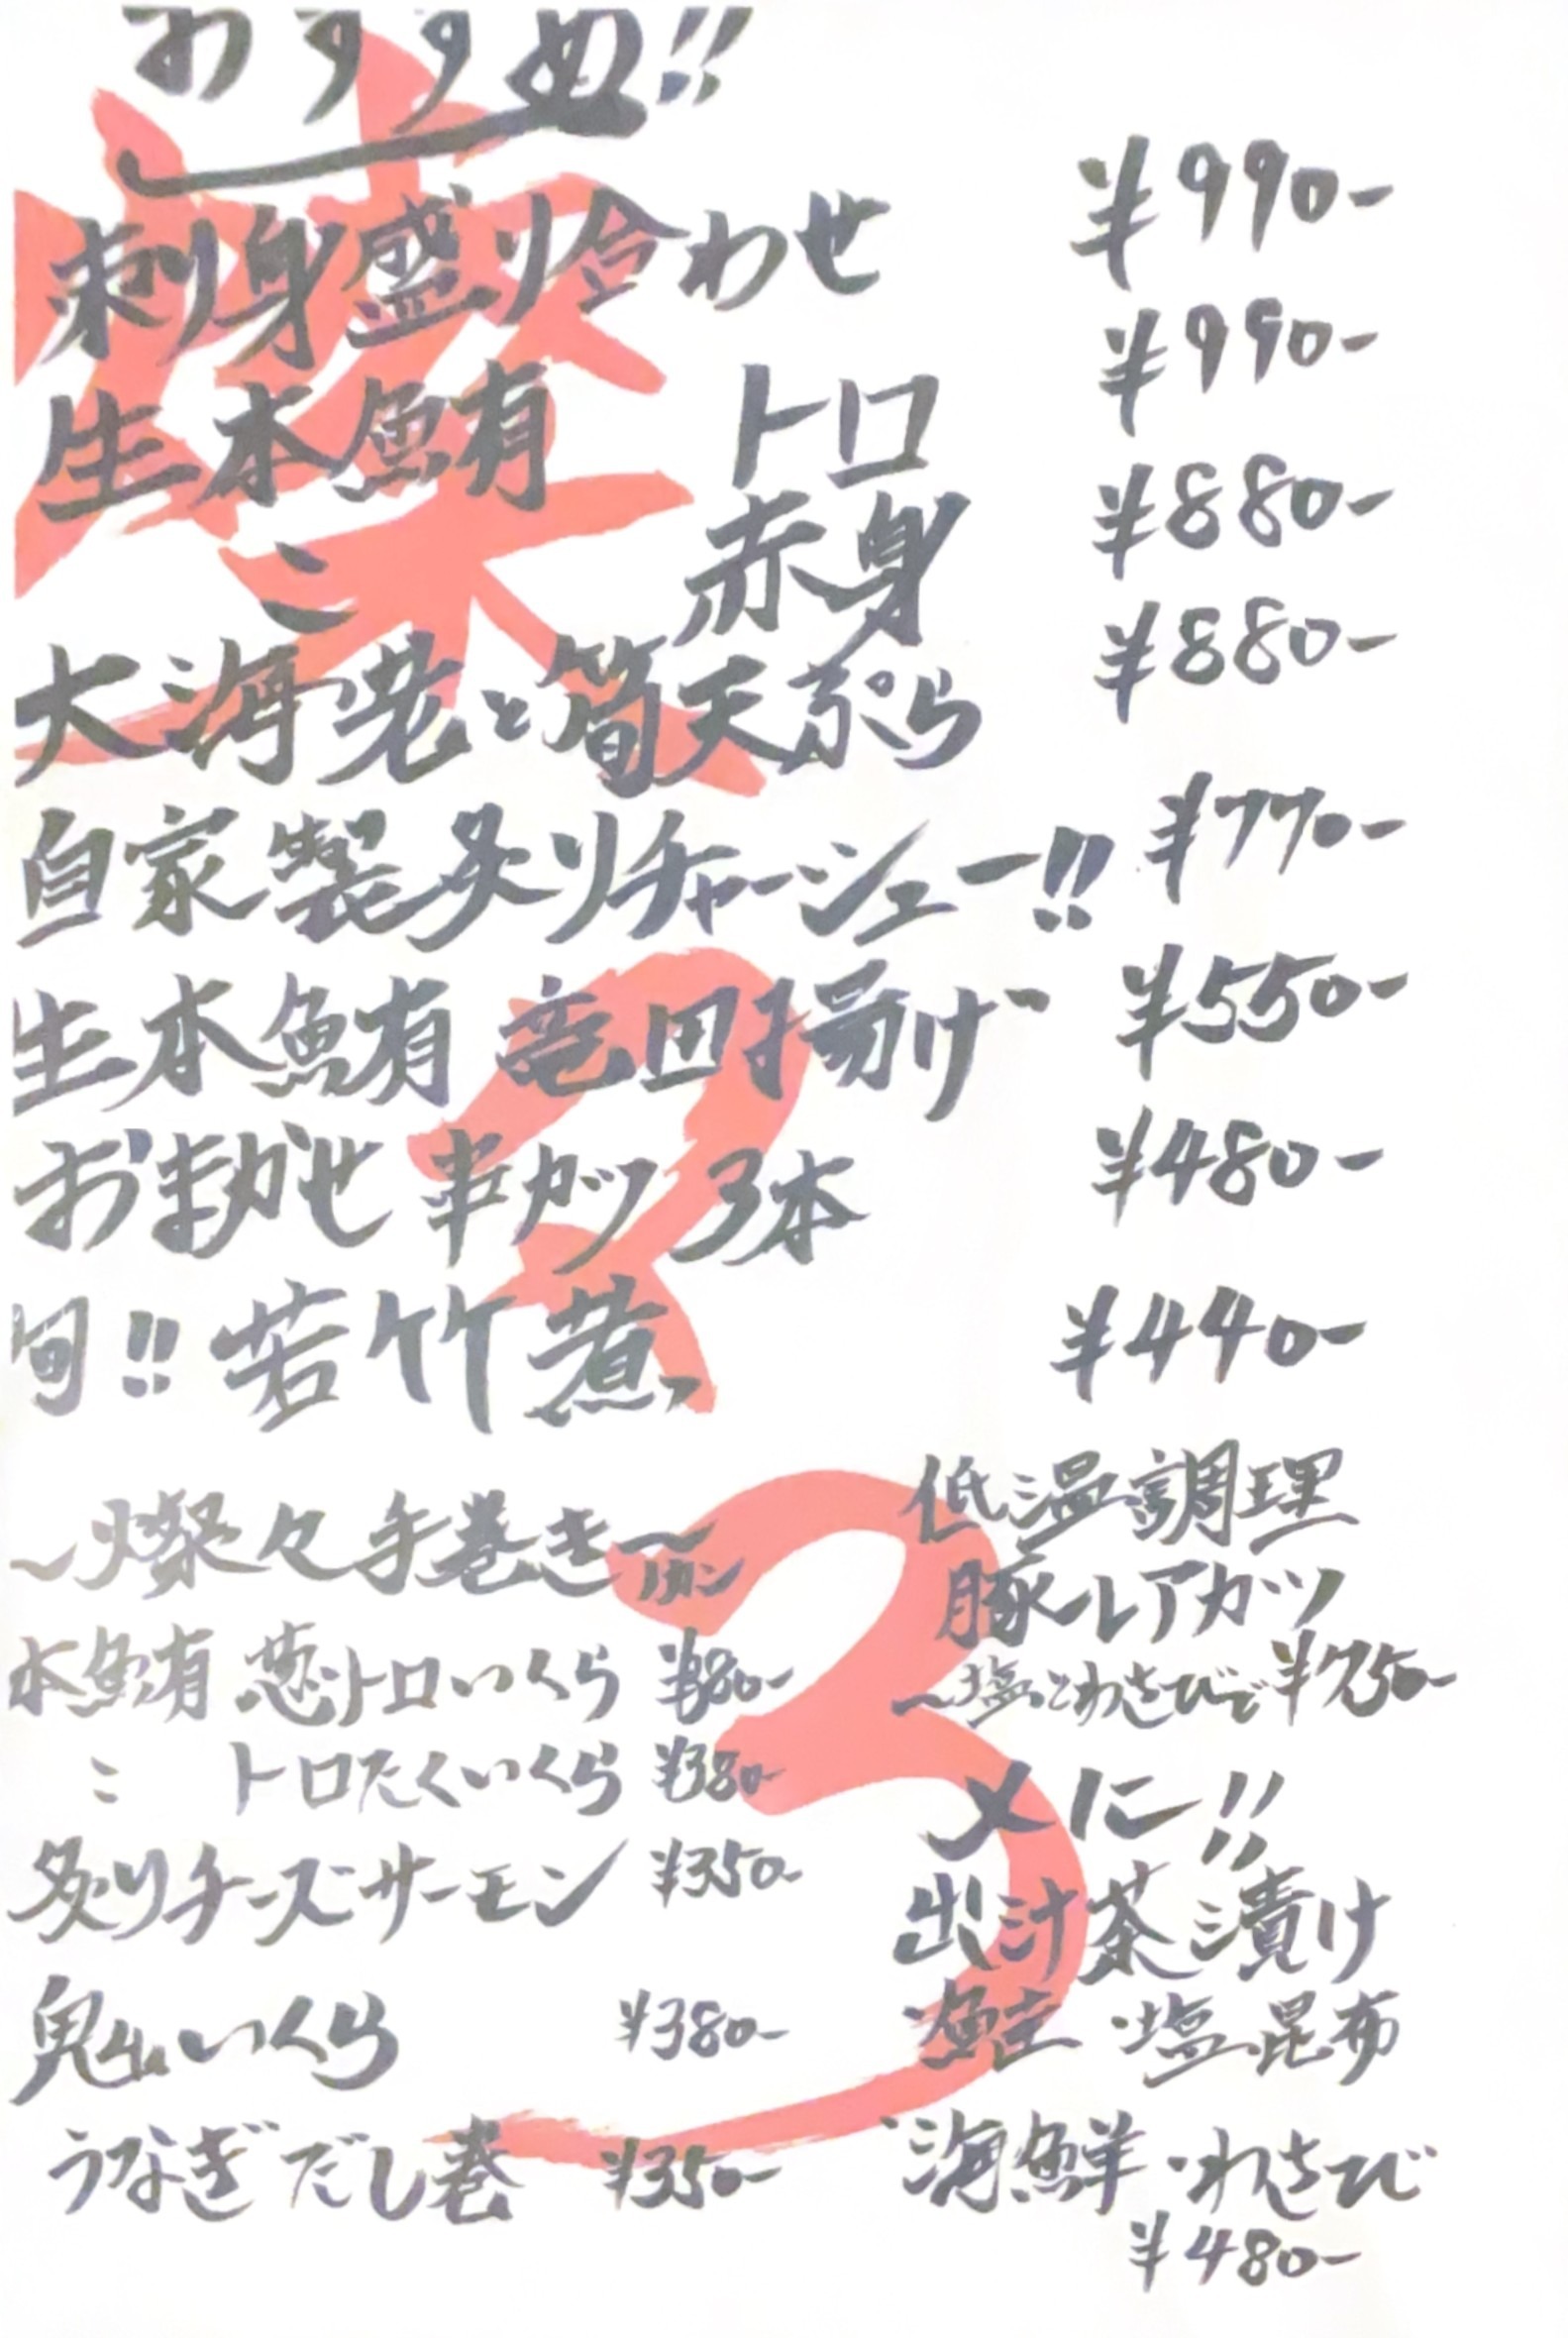 おすすめ!!
刺身盛り合わせ ¥990-
生本鮪 トロ ¥990-
〃 赤身 ¥880-
大海老と筍天ぷら ¥880-
自家製炙りチャーシュー!! ¥770-
生本鮪 竜田揚げ ¥550-
おまかせ 串カツ 3本 ¥480-
旬!! 若竹煮 ¥440-
~燦々手巻き~
本鮪 葱トロいくら ¥380-
〃 トロたくいくら ¥380-
炙りチーズサーモン ¥350-
鬼山いくら ¥380-
うなぎだし巻 ¥350-
低温調理
豚レアカツ
~塩とわさびで ¥750-
〆に!!
出汁茶漬け
・鮭 ・塩昆布
・海鮮 ・わさび
¥480-